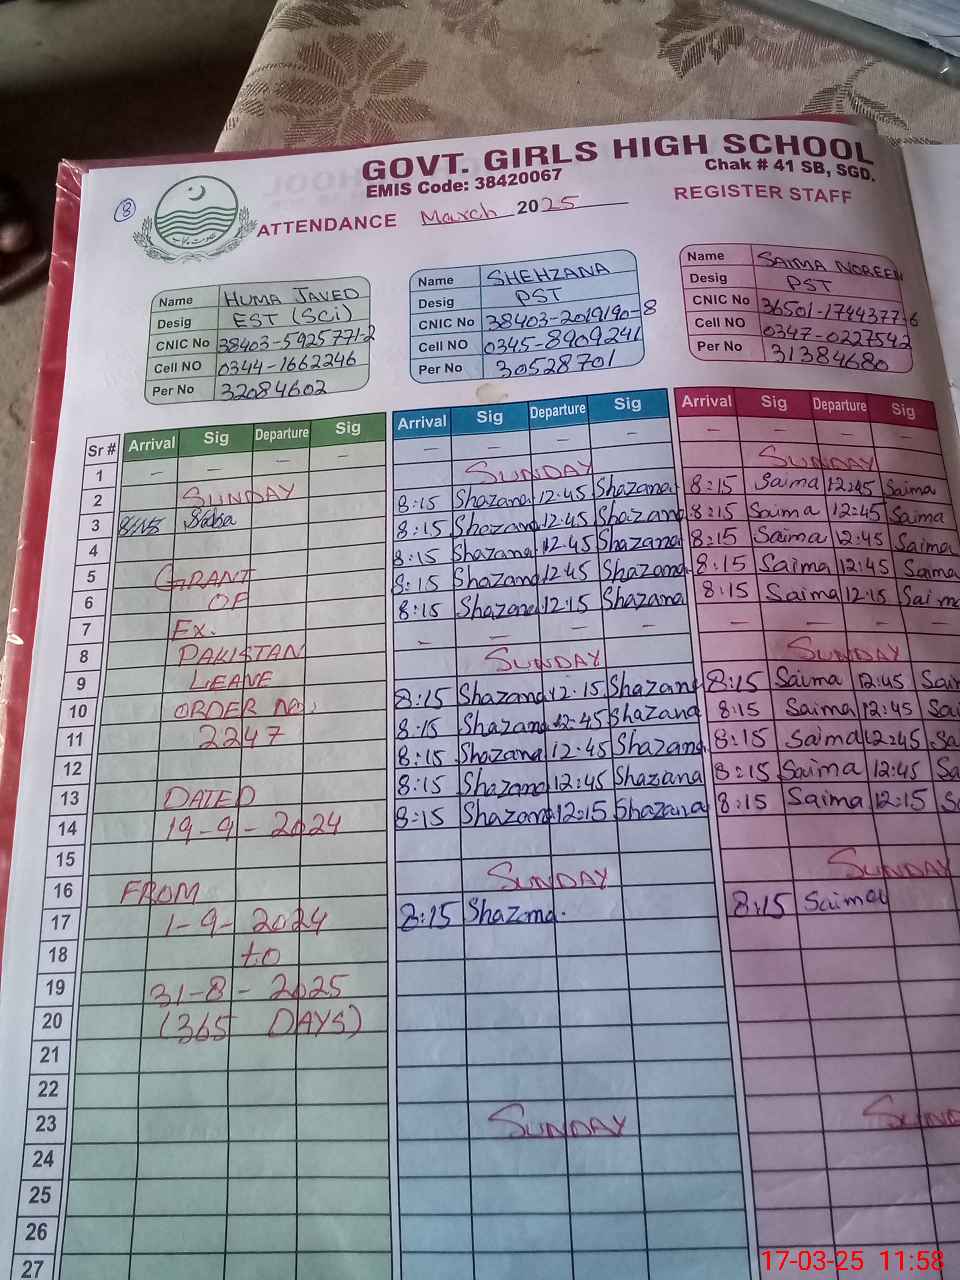 GOVT. GIRLS HIGH SCHOOL
EMIS Code: 38420067 Chak # 41 SB, SGD.
8
ATTENDANCE March 2025 REGISTER STAFF
Name HUMA JAVED
Desig EST (Sci)
CNIC No 38403-5925771-2
Cell NO 0344-1662246
Per No 32084602
Name SHEHZANA
Desig PST
CNIC No 38403-2019190-8
Cell NO 0345-8909241
Per No 30528701
Name SAIMA NOREEN
Desig PST
CNIC No 36501-1744377-6
Cell NO 0347-0227542
Per No 31384680
Sr # Arrival Sig Departure Sig Arrival Sig Departure Sig Arrival Sig Departure Sig
1 – – – – – – – – – – – –
2 SUNDAY SUNDAY SUNDAY
3 8:15 Shazana 12.45 Shazana 8:15 Saima 12:45 Saima
4 8:15 Shazana 12.45 Shazana 8:15 Saima 12:45 Saima
5 GRANT 8:15 Shazana 12.45 Shazana 8:15 Saima 12:45 Saima
6 OF 8:15 Shazana 12.45 Shazana 8:15 Saima 12:45 Saima
7 Ex. 8:15 Shazana 12:15 Shazana 8:15 Saima 12:15 Saima
8 PAKISTAN – – – – – – – –
9 LEAVE SUNDAY SUNDAY
10 ORDER No. 8:15 Shazana 12.15 Shazana 8:15 Saima 12:45
11 2247 8:15 Shazana 12:45 Shazana 8:15 Saima 12:45
12 8:15 Shazana 12:45 Shazana 8:15 Saima 12:45
13 DATED 8:15 Shazana 12:45 Shazana 8:15 Saima 12:45
14 19-9-2024 8:15 Shazana 12:15 Shazana 8:15 Saima 12:15
15
16 FROM SUNDAY SUNDAY
17 1-9-2024 8:15 Shazana. 8:15 Saima
18 to
19 31-8-2025
20 (365 DAYS)
21
22
23 SUNDAY
24
25
26
27
17-03-25 11:58